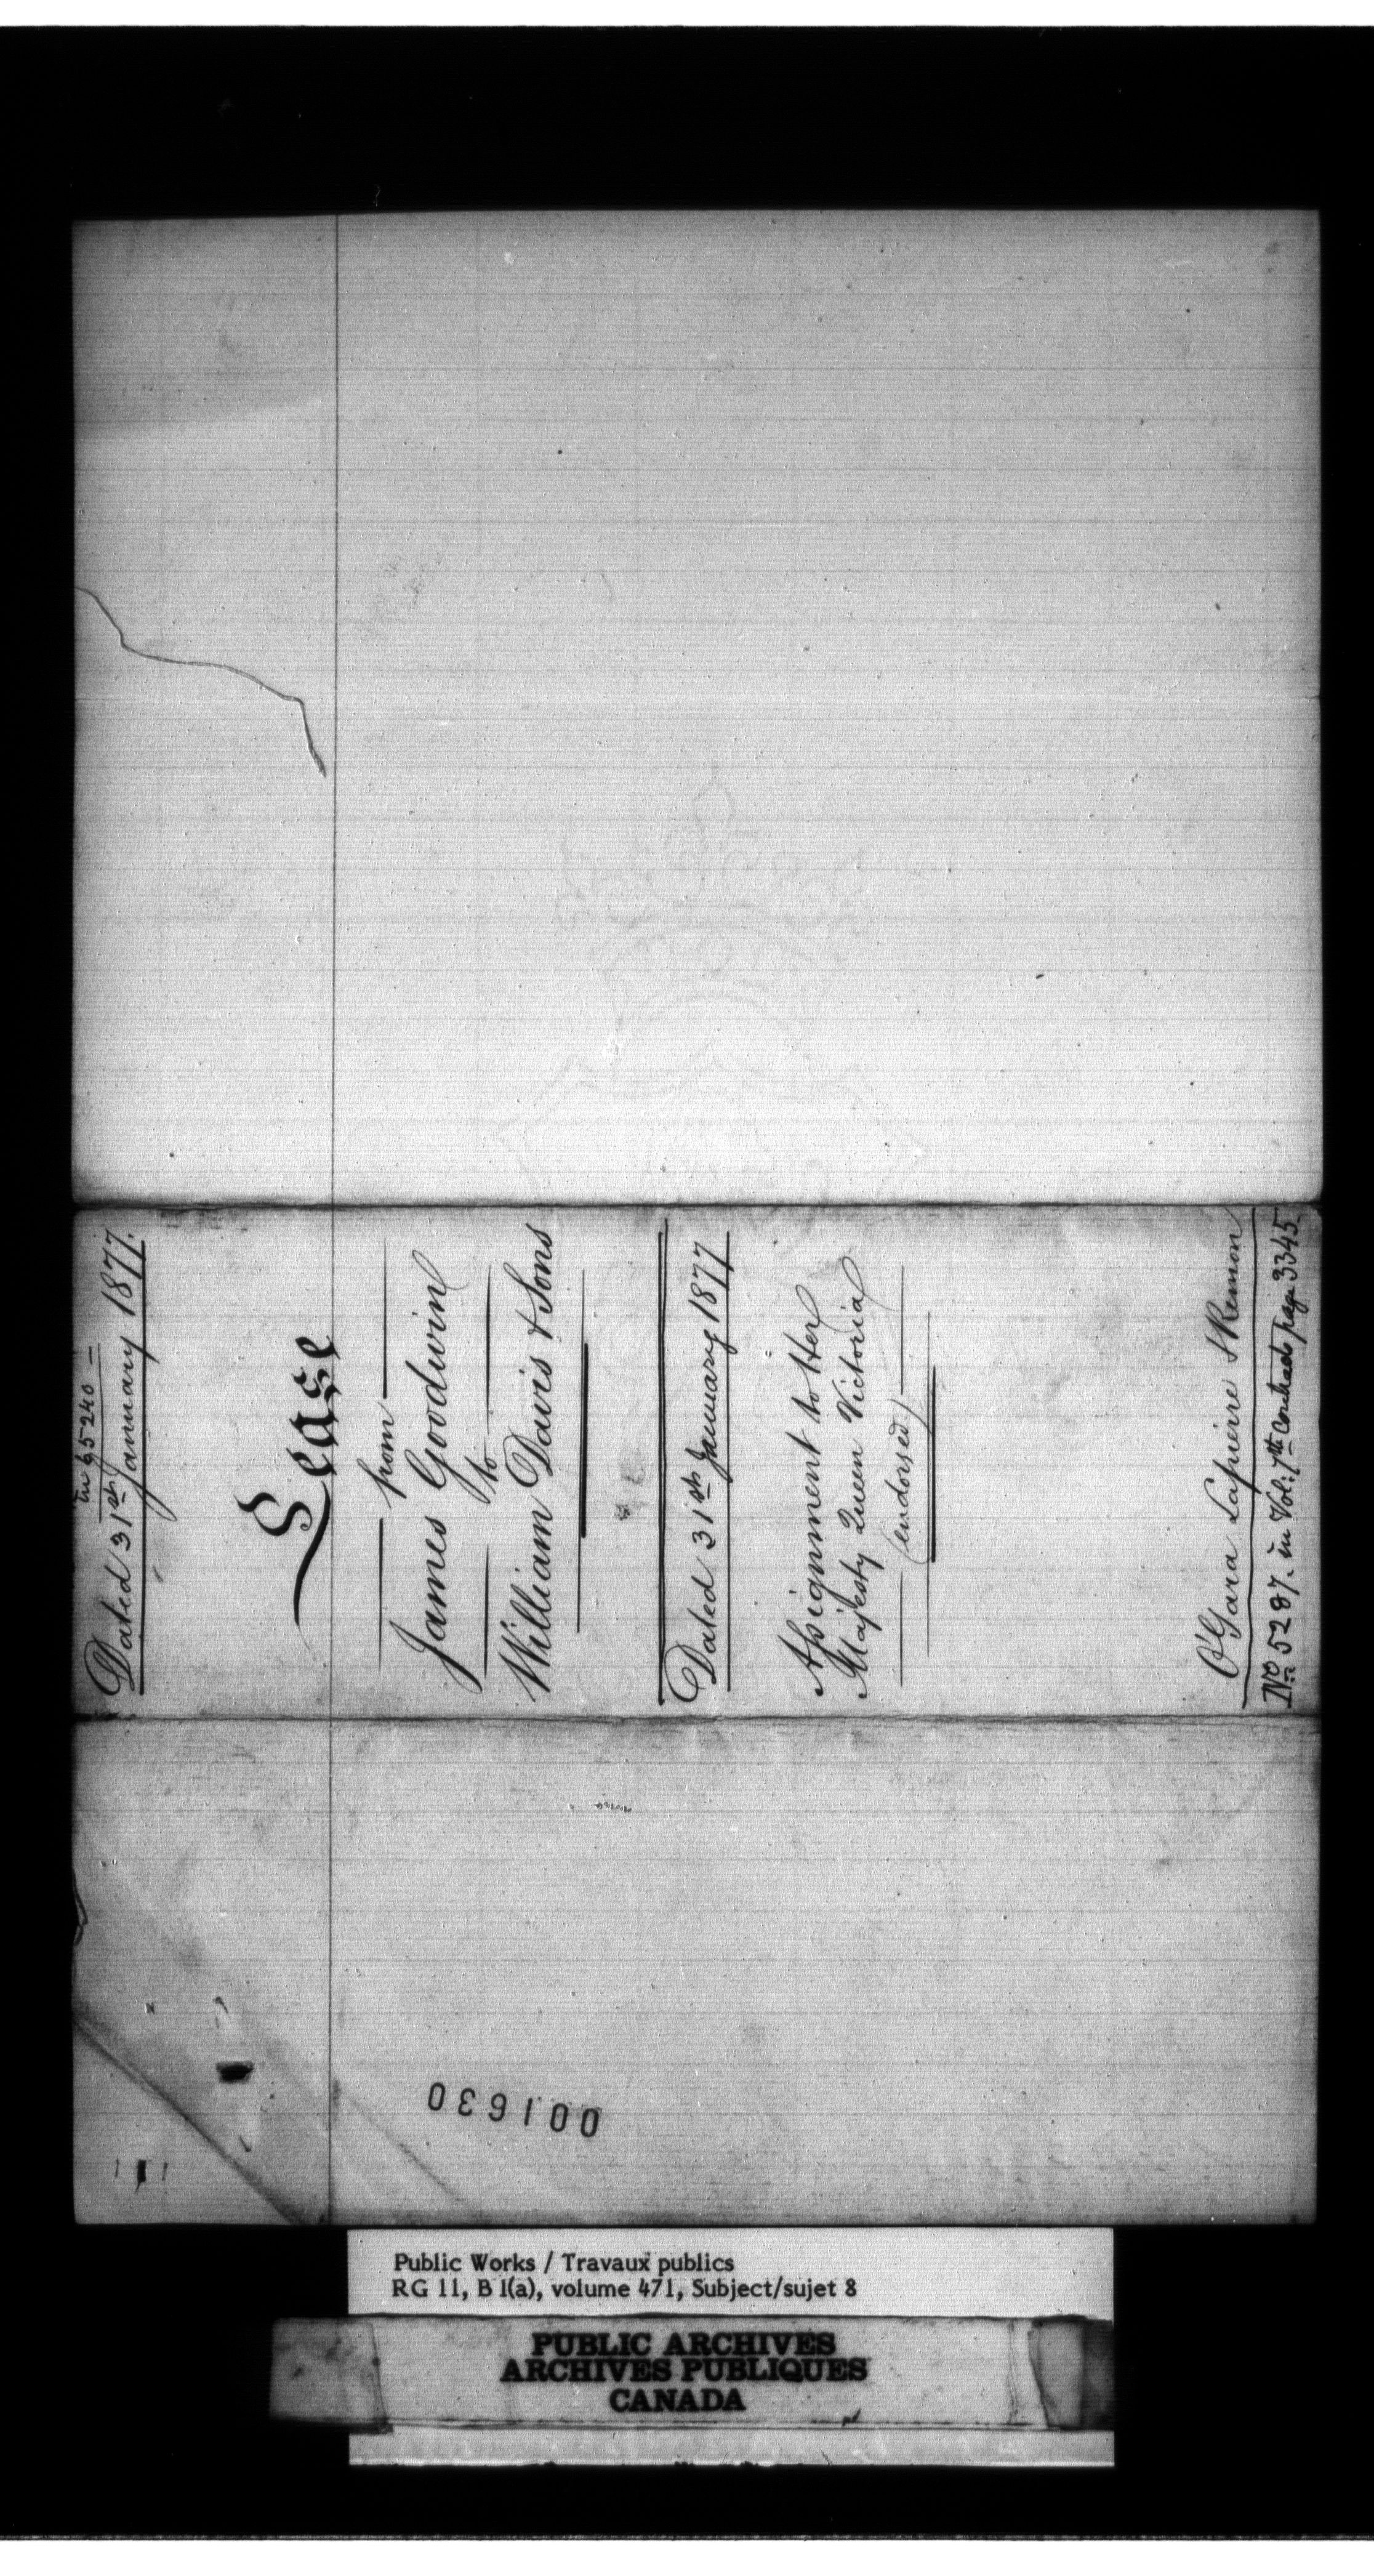 in 65240
Dated 31st January 1877.
Lease
from
James Goodwin
to
William Davis & Sons
Dated 31st January 1877
Assignment to Her
Majesty Queen Victoria
(endorsed)
O'Gara Lapierre & Remon
No 5287. in Vol: 7th Contracts page 3345
001630
Public Works / Travaux publics
RG 11, B 1(a), volume 471, Subject/sujet 8
PUBLIC ARCHIVES
ARCHIVES PUBLIQUES
CANADA